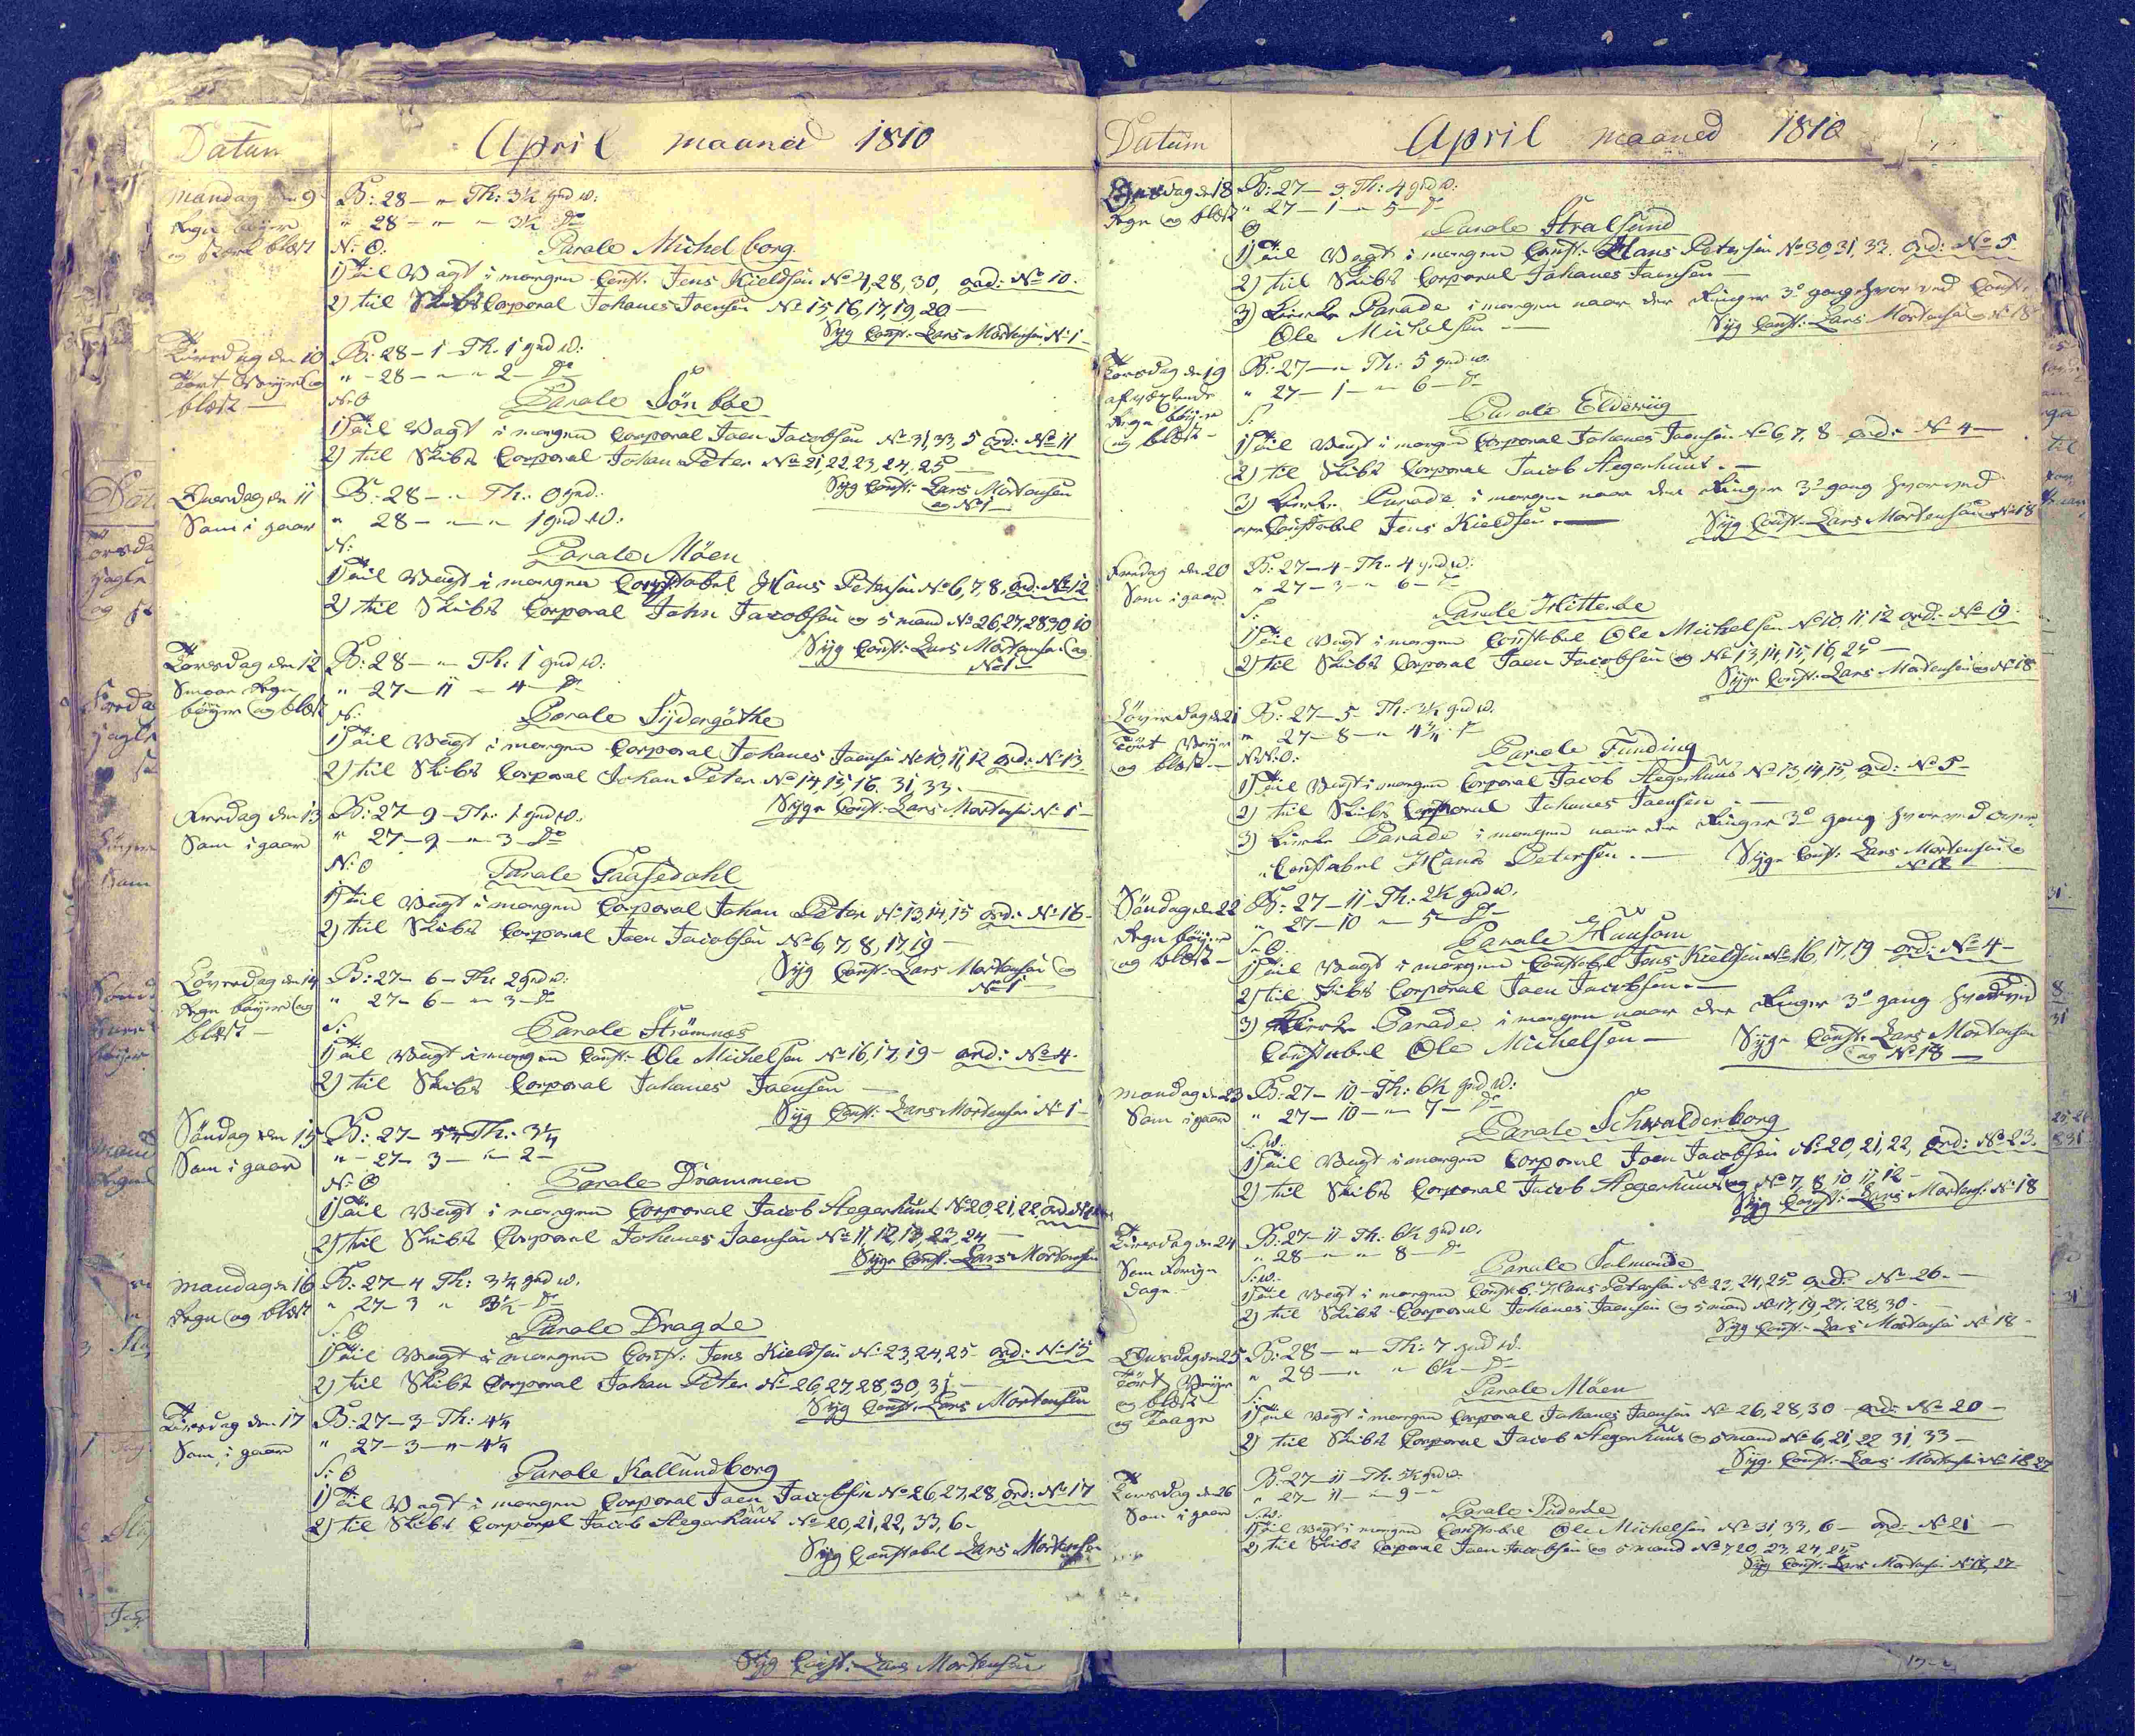 Datum
April maaned 1810
Mandag den 9
Regn bøyer
og stærk blæst
B: 28 — " Th: 3½ grd w:
" 28 — " — " 3½ do
N: O:
Parole Michelborg
1) til Vagt i morgen Const. Jens Kieldsen No 4, 28, 30, ord: No 10.
2) til Skibs Corporal Johanes Joensen No 15, 16, 17, 19, 20 —
Syg Const: Lars Mortensen No 1 —
Tirsdag den 10
Tört Veyer og
blæst —
B: 28 - 1 - Th: 1 grd w:
" - 28 — " — " 2 — do
N: O
Parole Sönboe
1) til Vagt i morgen Corporal Joen Jacobsen No 31, 33, 5 ord: No 11
2) til Skibs Corporal Johan Peter No 21, 22, 23, 24, 25 —
Syg Const: Lars Mortensen
og No 1 —
Onsdag den 11
Som i gaar
B: 28 — " Th: 0 grd.
" 28 — " — " 1 grd w:
N:
Parole Möen
1) til Vagt i morgen Constabel Hans Petersen No 6, 7, 8, ord: No 12
2) til Skibs Corporal John Jacobsen og 5 mand No 26, 27, 28, 30 10
Syg Const: Lars Mortensen og
No 1 —
Torsdag den 12
Smaae Regn
bøyer og blæst
B: 28 — " Th: 1 grd w:
" - 27 — 11 — " 4 — do
N:
Parole Sydergöthe
1) til Vagt i morgen Corporal Johanes Joensen No 10, 11, 12 ord: No 13
2) til Skibs Corporal Johan Peter No 14, 15, 16, 31, 33.
Syge Const: Lars Mortensen No 1 —
Fredag den 13
Som i gaar
B: 27 - 9 - Th: 1 grd w.
" 27 - 9 — " 3 — do
N: O
Parole Gaasedahl
1) til Vagt i morgen Corporal Johan Peter No 13, 14, 15 ord: No 16 -
2) til Skibs Corporal Joen Jacobsen No 6, 7, 8, 17, 19 —
Syg Const: Lars Mortensen og
No 1
Löverdag den 14
Regn bøyer og
blæst —
B: 27 - 6 - Th: 2 grd w:
" 27 - 6 — " 3 — do
S:
Parole Strömnæs
1) til Vagt i morgen Const: Ole Michelsen No 16, 17, 19 — ord: No 4.
2) til Skibs Corporal Johanes Joensen —
Syg Const: Lars Mortensen No 1 —
Söndag den 15
Som i gaar
B: 27 - 5¾ Th: 3¼
" - 27 - 3 — " 2 —
N: O
Parole Drammen
1) til Vagt i morgen Corporal Jacob Hegerhuus No 20, 21, 22, ord
2) til Skibs Corporal Johanes Joensen No 11, 12, 13, 23, 24 —
Syge Const: Lars Mortensen
Mandag den 16
Regn og blæst
B: 27 - 4 Th: 3¼ grd w.
" 27 - 3 " 3½ — do
S: O
Parole Dragöe
1) til Vagt i morgen Const: Jens Kieldsen No 23, 24, 25 — ord: No 15
2) til Skibs Corporal Johan Peter No 26, 27, 28, 30, 31 —
Syg Const: Lars Mortensen
Tirsdag den 17
Som i gaar
B: 27 - 3 - Th: 4¼
" 27 - 3 — " — 4¼
S: O
Parole Kallundborg
1) til Vagt i morgen Corporal Joen Jacobsen No 26, 27, 28 ord: No 17
2) til Skibs Corporal Jacob Hegerhuus No 20, 21, 22, 33, 6 —
Syg Constabel Lars Mortensen
Syg Const: Lars Mortensen
Datum
April maaned 1810
Onsdag den 18
Regn og blæst
B: 27 — 3 Th: 4 grd w:
" 27 — 1 — " 5 — do
O
Parole Stralsund
1) til Vagt i morgen Const: Hans Petersen No 30, 31, 33. ord: No 5
2) til Skibs Corporal Johanes Joensen —
3) Kirke Parade i morgen naar der Ringer 3de gang hvor ved Const:
Ole Michelsen —
Syg Const: Lars Mortensen og No 18
Torsdag den 19
afvexlende
Regn bøyer
og blæst —
B: 27 — " Th: 5 grd w.
" 27 — 1 — " 6 — do
S:
Parole Elderiig
1) til Vagt i morgen Corporal Johanes Joensen No 6, 7, 8 ord: No 4 —
2) til Skibs Corporal Jacob Hegerhuus. —
3) Kirke Parade i morgen naar der Ringer 3de gang hvorved
Constabel Jens Kieldsen. —
Syg Const: Lars Mortensen No 18
Fredag den 20
Som i gaar
B: 27 — 4 - Th: 4 grd w:
" 27 — 3 — " 6 — do
S:
Parole Hitteröe
1) til Vagt i morgen Constabel Ole Michelsen No 10, 11, 12 ord: No 19.
2) til Skibs Corporal Joen Jacobsen og No 13, 14, 15, 16, 25 —
Syge Const: Lars Mortensen og No 18
Löverdag den 21
Tört Veyer
og blæst —
B: 27 — 5 - Th: 3½ grd w.
" 27 — 8 — " 4¾ do
N: N: O:
Parole Funding
1) til Vagt i morgen Corporal Jacob Hegerhuus No 13, 14, 15, ord: No 5 —
2) til Skibs Corporal Johanes Joensen —
3) Kirke Parade i morgen naar der Ringer 3de gang hvorved
Constabel Hans Petersen. —
Syge Const: Lars Mortensen og
No 18
Söndag den 22
Regn bøyer
og blæst —
B: 27 — 11 - Th: 2½ grd w.
" 27 — 10 — " 5 — do
S: O.
Parole Huusom
1) til Vagt i morgen Constabel Jens Kieldsen No 16, 17, 19 — ord: No 4 —
2) til Skibs Corporal Joen Jacobsen. —
3) Kirke Parade i morgen naar der Ringer 3de gang hvorved
Constabel Ole Michelsen —
Syge Const: Lars Mortensen
og No 18 —
Mandag den 23
Som i gaar
B: 27 — 10 - Th: 6½ grd w:
" 27 — 10 — " 7 — do
S. w.
Parole Schwalderborg
1) til Vagt i morgen Corporal Joen Jacobsen No 20, 21, 22, ord: No 23.
2) til Skibs Corporal Jacob Hegerhuus og No 7, 8 10 11 12 —
Syg Const: Lars Mortens: No 18
Tirsdag den 24
Som Forrige
dage —
B: 27 — 11 Th: 6½ grd w.
" 28 — " — " 8 — do
S: w.
Parole Salmunde
1) til Vagt i morgen Constb: Hans Petersen No 23, 24, 25 ord: No 26. —
2) til Skibs Corporal Johanes Joensen og 5 mand No 17, 19, 27, 28, 30 —
Syg Const: Lars Mortensen No 18 —
Onsdag den 25
Tört Veyer
og blæst
og Taage
B: 28 — " Th: 7 grd w.
" 28 — " " 6½ — do
S:
Parole Möen
1) til Vagt i morgen Corporal Johanes Joensen No 26, 28, 30 — ord: No 20 —
2) til Skibs Corporal Jacob Hegerhuus og 5 mand No 6, 21, 22 31, 33 —
Syg. Const: Lars Mortensen No 18 27
Torsdag den 26
Som i gaar
B: 27 — 11 - Th: 5½ grd w.
" 27 — 11 — " 9 — "
S. w:
Parole Süderöe
1) til Vagt i morgen Constabel Ole Michelsen No 31, 33, 6 — ord: No 21 —
2) til Skibs Corporal Joen Jacobsen og 5 mand No 7, 20, 23, 24, 25
Syg Const: Lars Mortensen No 18, 27 —